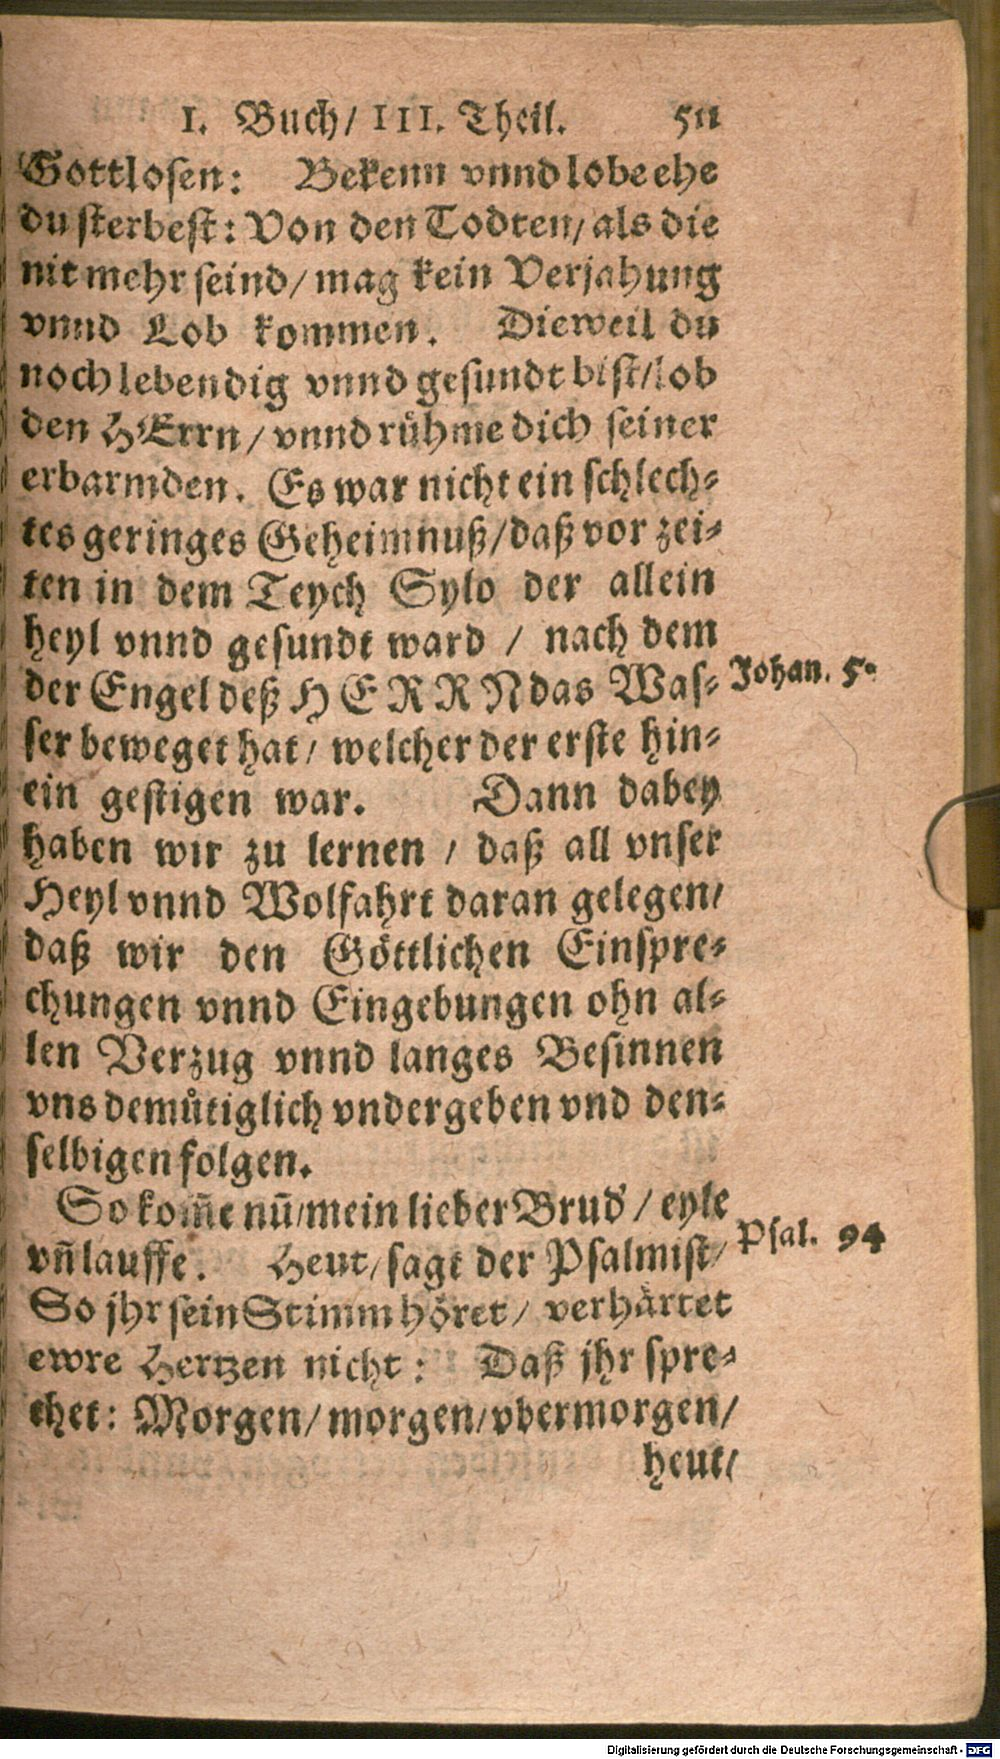 I. Buch/ III. Theil. 511
Gottlosen: Bekenn vnnd lobe ehe
du sterbest: Von den Todten/ als die
nit mehr seind/ mag kein Verjahung
vnnd Lob kommen. Dieweil du
noch lebendig vnnd gesundt bist/ lob
den HErrn/ vnnd růhme dich seiner
erbarmden. Es war nicht ein schlech-
tes geringes Geheimnuß/ daß vor zei-
ten in dem Teych Sylo der allein
heyl vnnd gesundt ward / nach dem
der Engel deß HERRN das Was- Johan. 5.
ser beweget hat/ welcher der erste hin-
ein gestigen war. Dann dabey
haben wir zu lernen / daß all vnser
Heyl vnnd Wolfahrt daran gelegen/
daß wir den Göttlichen Einspre-
chungen vnnd Eingebungen ohn al-
len Verzug vnnd langes Besinnen
vns demůtiglich vndergeben vnd den-
selbigen folgen.
So kom̃e nũ/ mein lieber Brud'/ eyle
vñ lauffe. Heut/ sagt der Psalmist/ Psal. 94
So jhr sein Stimm höret/ verhärtet
ewre Hertzen nicht: Daß jhr spre-
chet: Morgen/ morgen/ vbermorgen/
heut/
Digitalisierung gefördert durch die Deutsche Forschungsgemeinschaft - DFG